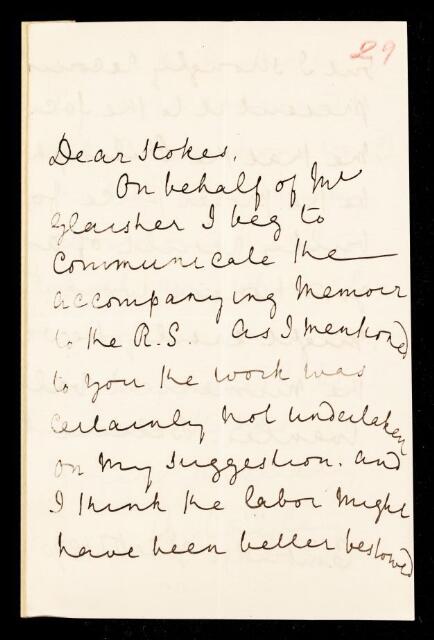 29
Dear Stokes,
On behalf of Mr
Glaisher I beg to
communicate the
accompanying Memoir
to the R.S. As I mentioned
to you the work was
certainly not undertaken
on my suggestion. and
I think the labor might
have been better bestowed